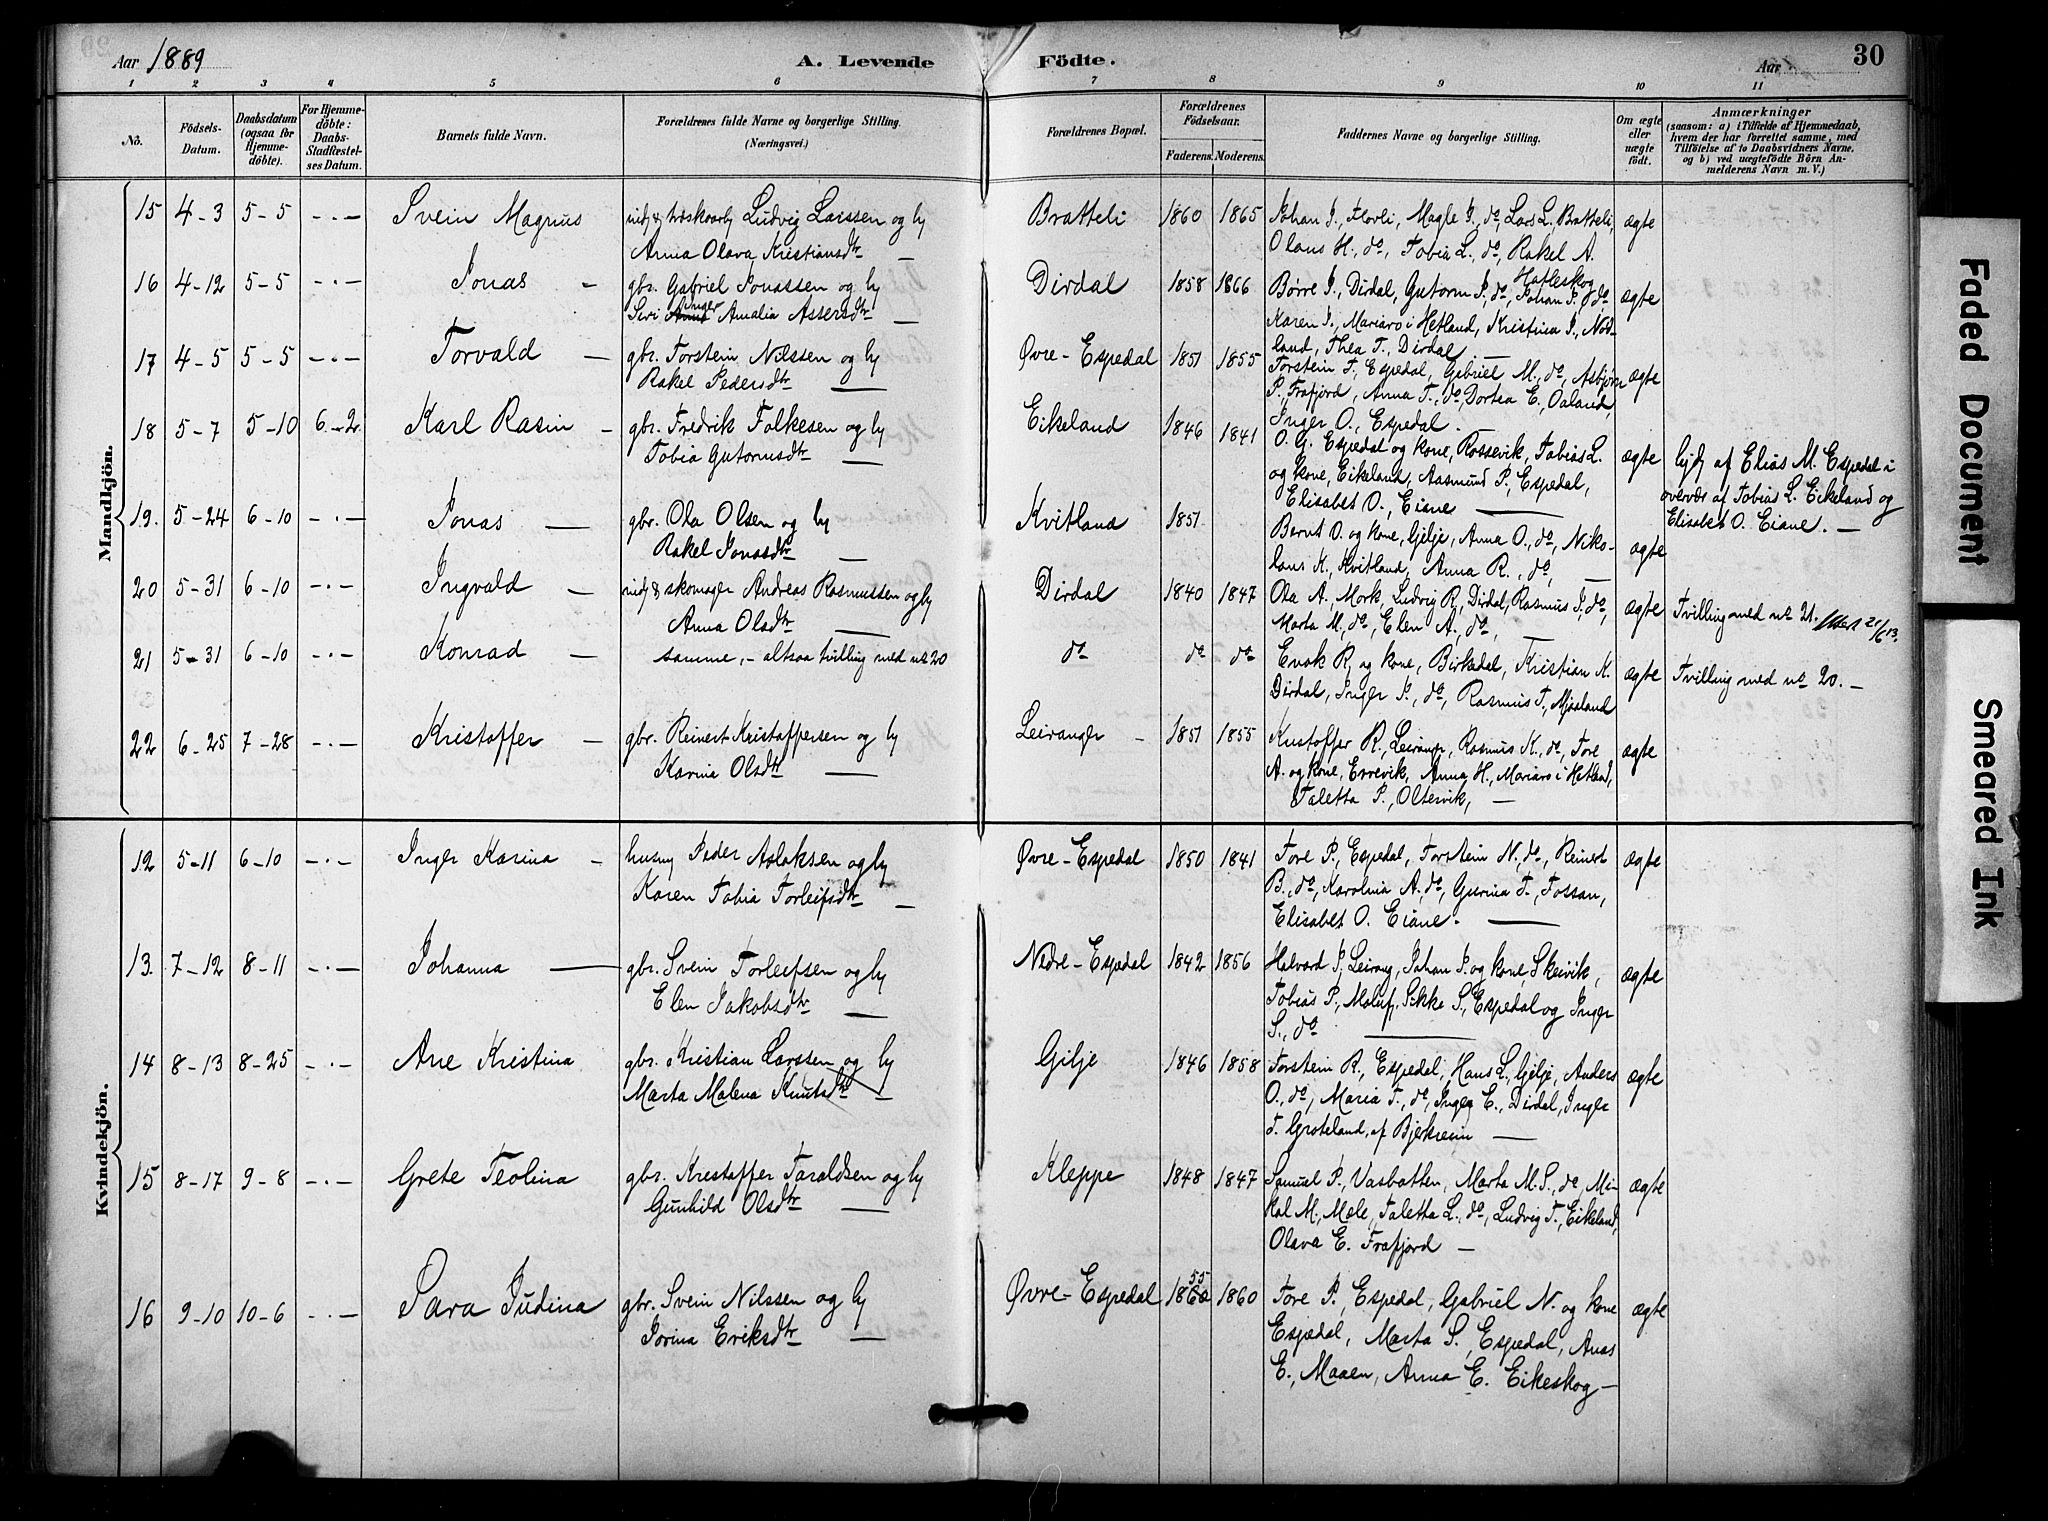 Aar 1889 A. Levende Födte. Aar 30
1 2 3 4 5 6 7 8 9 10 11
Nö. Födsels-Datum. Daabsdatum (ogsaa for Hjemme-döbte). For Hjemme-döbte: Daabs-Stadfæstel-ses Datum. Barnets fulde Navn. Forældrenes fulde Navne og borgerlige Stilling. (Næringsvei.) Forældrenes Bopæl. Forældrenes Födselsaar. Faderens. Moderens. Faddernes Navne og borgerlige Stilling. Om ægte eller uægte födt. Anmærkninger (saasom: a) i Tilfælde af Hjemmedaab, hvem der har forrettet samme, med Tilföielse af to Daabsvidners Navne, og b) ved uægtefödte Börn An-melderens Navn m. V.)
Mandkjön.
15 4-3 5-5 -.- Svein Magnus Ludvig Larssen og hu Bratteli 1860 1865 Johan I., Flovli, Magle I., do, Lars L. Bratteli, ægte
Anna Olava Kristiansdtr — Olaus H., do, Tobia L., do, Rakel A.
16 4-12 5-5 -.- Jonas - gbr. Gabriel Jonassen og hu Dirdal 1858 1866 Børre I., Dirdal, Gutorm I., do, Johan P., Hatleskog do ægte
Siri Inger Amalia Assersdtr — Karen I., Mariaro i Hetland, Kristina I., Nod-
17 4-5 5-5 -.- Torvald — gbr. Torstein Nilssen og hu Øvre-Espedal 1851 1855 land, Thea T., Dirdal — ægte
Rakel Pedersdtr — Torstein T., Espedal, Gabriel M., do, Asbjørn
P., Frafjord, Anna T., do, Dortea E., Oaland,
18 5-7 5-10 6-2 Karl Rasin - gbr. Fredrik Folkesen og hu Eikeland 1846 1841 Inger O., Espedal. —
Tobia Gutormsdtr — O. G. Espedal og kone, Rossevik, Tobias L. ægte hjd af Elias M. Espedal i
og kone, Eikeland, Aasmund P., Espedal, overvær af Tobias L. Eikeland og
Elisabet O., Eiane — Elisabet O. Eiane. —
19. 5-24 6-10 -.- Jonas — gbr. Ola Olsen og hu Kvitland 1851 Bernt O. og kone, Gilje, Anna O., do, Niko- ægte
Rakel Jonasdtr — laus K., Kvitland, Anna R., do, —
20 5-31 6-10 -.- Ingvald - skomager Andreas Rasmussen og hu Dirdal 1840 1847 Ola A., Mork, Ludvig R., Dirdal, Rasmus I., do, ægte Tvilling med no 21.
Anna Olsdtr — Marta M., do, Elen A., do, —
21 5-31 6-10 -.- Konrad - samme, - altsaa tvilling med no 20 do do do Enok R. og kone, Birkedal, Kristian K. ægte Tvilling med no 20. —
Dirdal, Inger P., do, Rasmus T., Mjaaland
22 6-25 7-28 -.- Kristoffer - gbr. Reinert Kristoffersen og hu Leiranger - 1851 1855 Kristoffer R., Leiranger, Rasmus K., do, Tore ægte
Karina Olsdtr — A. og kone, Errevik, Anna H., Mariaro i Hetland,
Taletta P., Oltesvik, —
Kvindekjön.
12 5-11 6-10 -.- Inger Karina - husm Peder Aslaksen og hu Øvre-Espedal 1850 1841 Tore P., Espedal, Torstein N., do, Reinert ægte
Karen Tobia Torleifsdtr — B., do, Karolina A., do, Gurina T., Fossan,
Elisabet O. Eiane. —
13. 7-12 8-11 -.- Johanna — gbr. Svein Torleifsen og hu Nedre-Espedal 1842 1856 Halvard P., Leirang, Johan P. og kone, Skeivik, ægte
Elen Jakobsdtr — Tobias P., Molaug, Sikke S., Espedal og Inger
S., do —
14 8-13 8-25 -.- Ane Kristina gbr. Kristian Larssen og hu Gilje 1846 1858 Torstein R., Espedal, Hans L., Gilje, Anders ægte
Marta Malena Knutsdtr — O., do, Maria T., do, Inger E., Dirdal, Inger
T. Groteland, af Bjerkreim —
15 8-17 9-8 -.- Grete Teolina gbr. Kristoffer Taraldsen og hu Kleppe 1848 1847 Samuel P., Vasbotten, Marta M. S., do, Mi- ægte
Gunhild Olsdtr — kal M., Mæle, Taletta L., do, Ludvig T., Eikeland,
Olava E. Frafjord —
16 9-10 10-6 -.- Sara Judina gbr. Svein Nilssen og hu Øvre-Espedal 1860 55 1860 Tore P., Espedal, Gabriel N. og kone ægte
Jorina Eriksdtr — Espedal, Marta S., Espedal, Anas
E., Maaen, Anna E. Eikeskog —
Faded Document
Smeared Ink